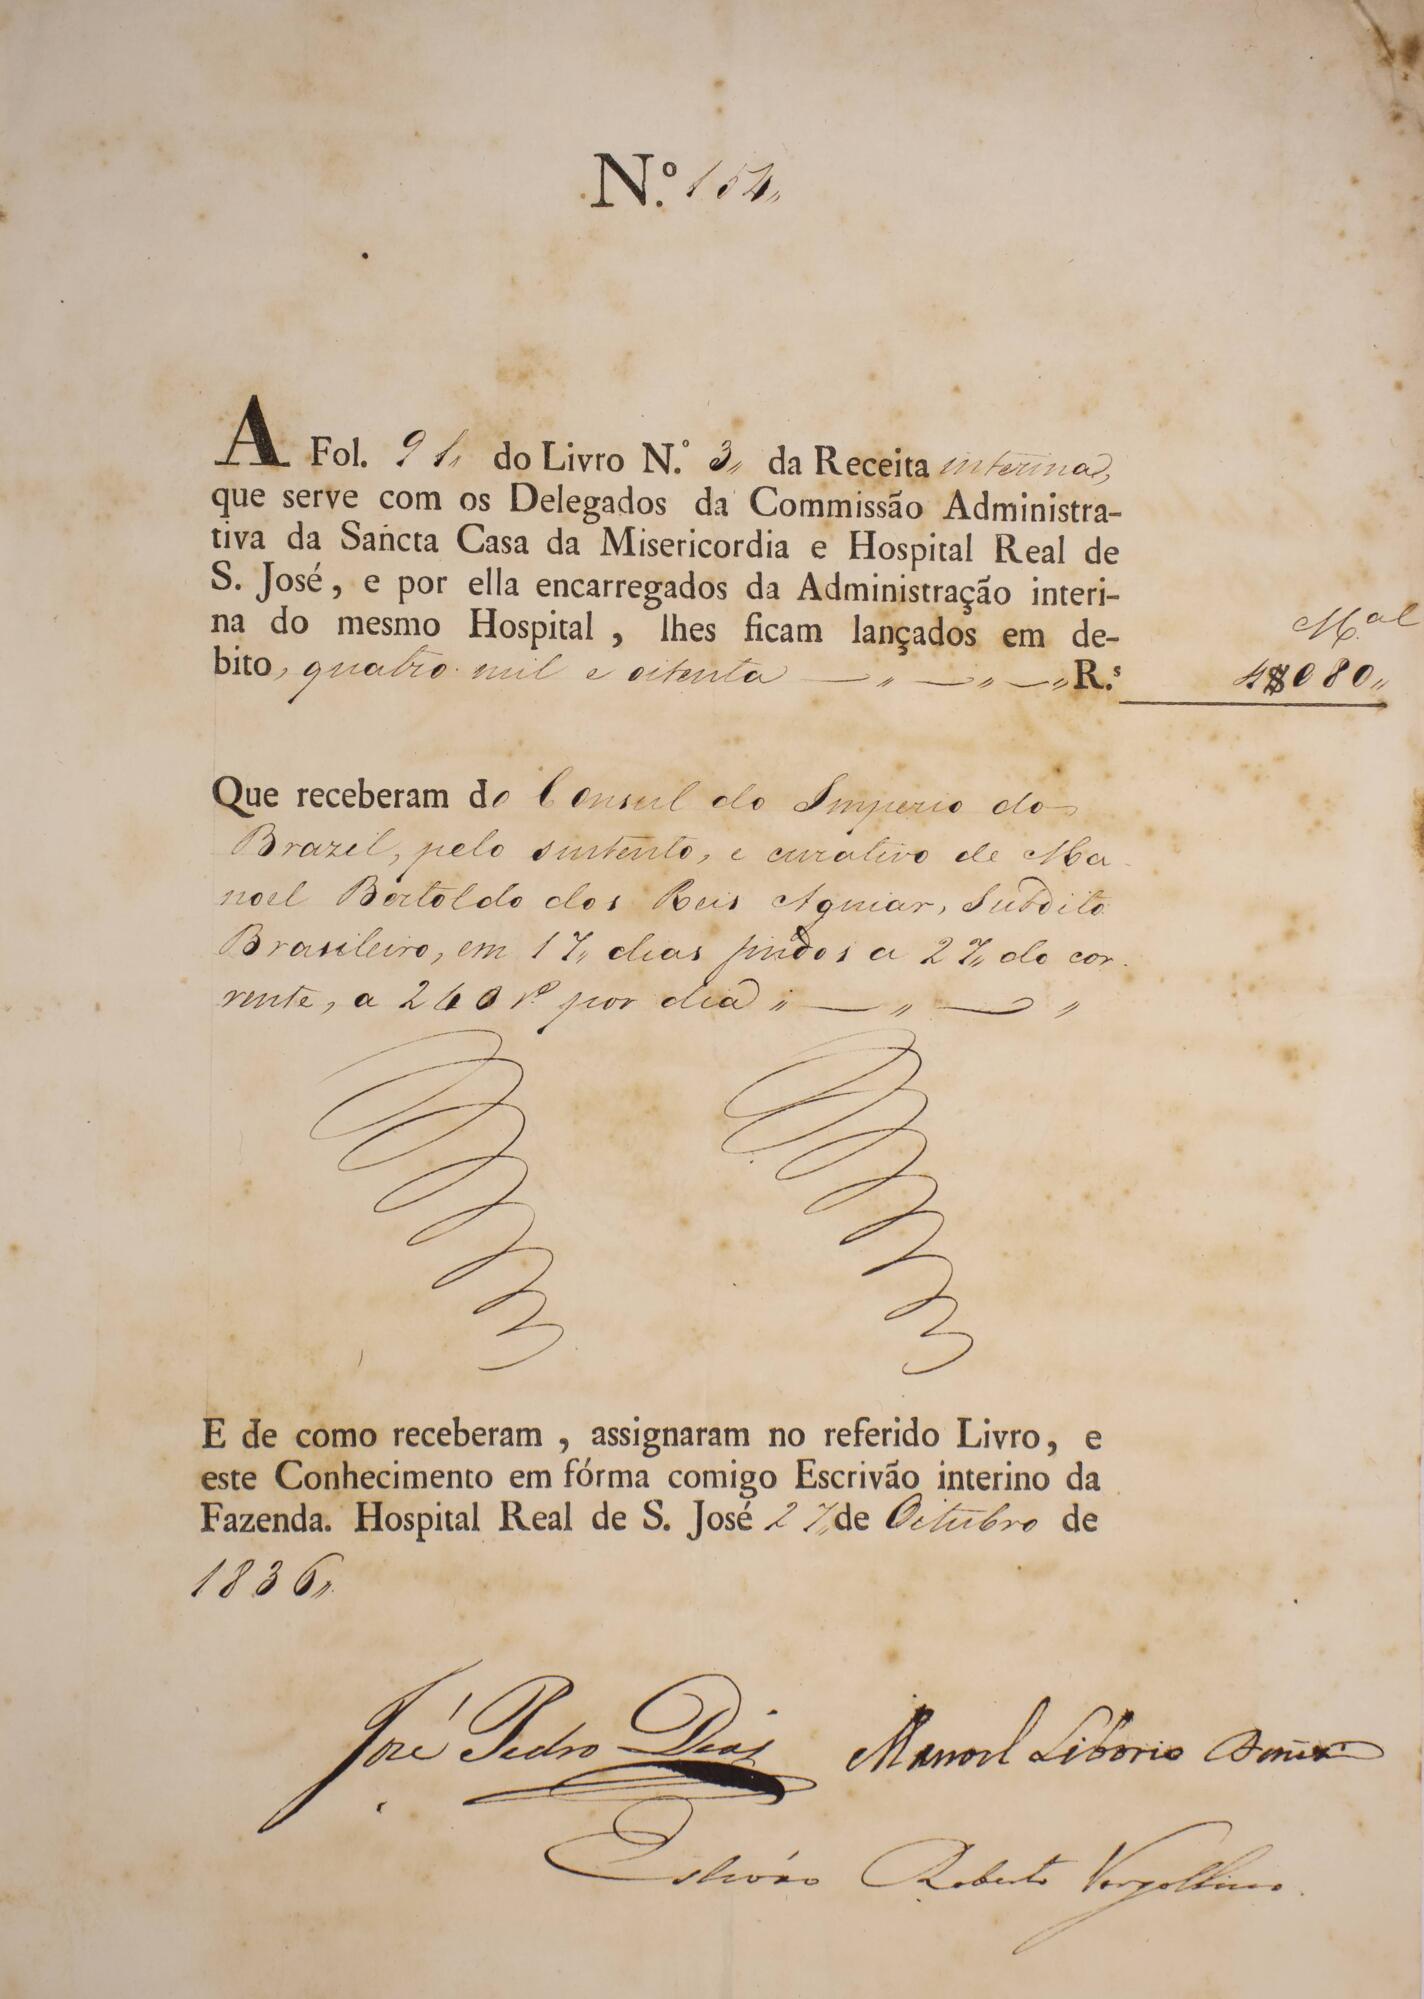 N.º 154,,
A Fol. 91,, do Livro N.º 3,, da Receita interina,
que serve com os Delegados da Commissão Administra-
tiva da Sancta Casa da Misericordia e Hospital Real de
S. José, e por ella encarregados da Administração interi-
na do mesmo Hospital, lhes ficam lançados em de-
M.al
bito, quatro mil e oitenta — ,, — ,, — ,, R.s 4$080,,
Que receberam do Consul do Imperio do
Brazil, pelo sustento, e curativo de Ma-
noel Bertoldo dos Reis Aguiar, Subdito
Brasileiro, em 17,, dias findos a 27,, do cor-
rente, a 240 r.s por dia ,, — ,, — ,,
E de como receberam, assignaram no referido Livro, e
este Conhecimento em fórma comigo Escrivão interino da
Fazenda. Hospital Real de S. José 27,, de Oitubro de
1836,,
José Pedro Dias Manoel Liborio
Estevão Roberto Vergollino